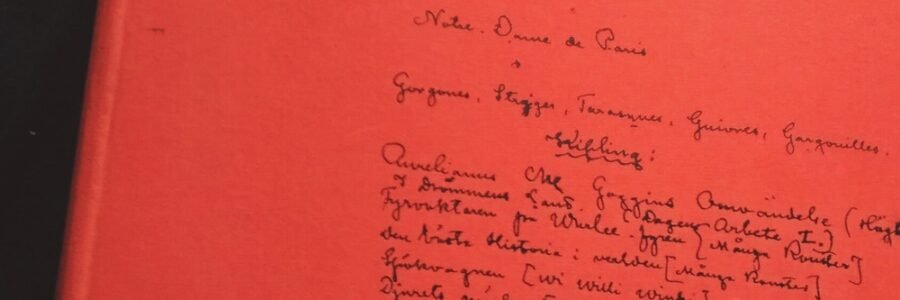 Notre-Dame de Paris
Gorgones, Stryges, Tarasques, Guivres, Gargouilles.
Kipling:
Aurelianus Mc Goggins Omvändelse (
I Drömmens Land. [Dagens Arbete I.]
Fyrvaktaren på Wurlee fyren [Många Rouster]
Den bästa Historia i världen [Många Rouster]
Sjukvagnen [wi willi winkie]
Djurets